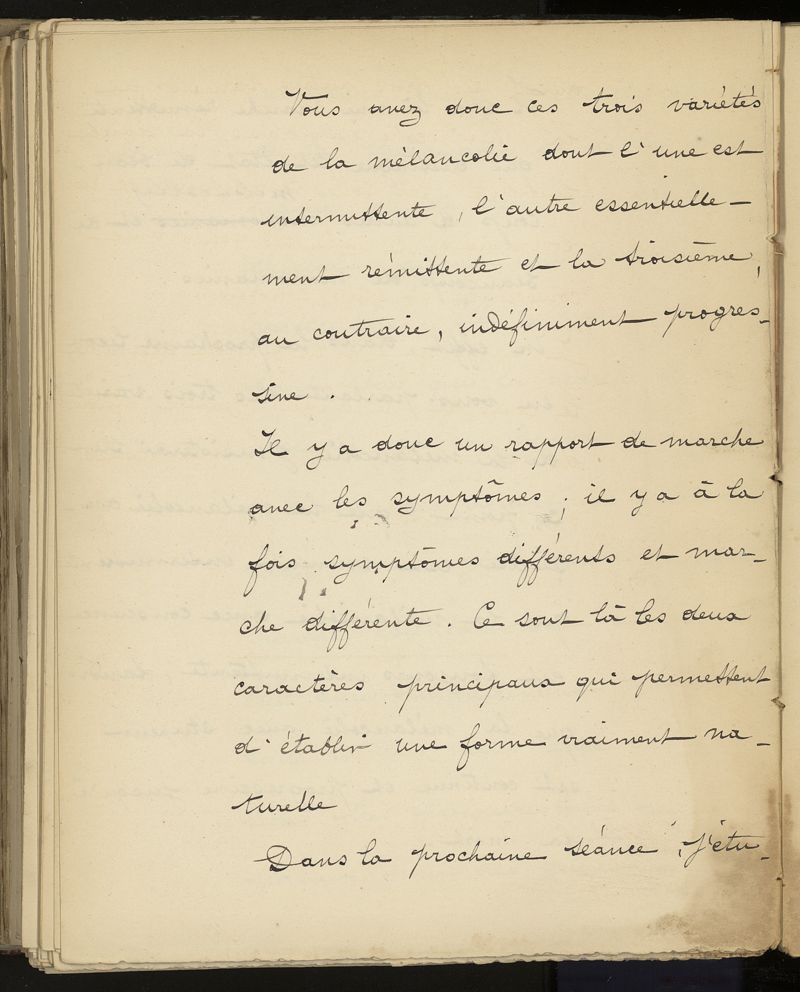 Vous avez donc ces trois variétés
de la mélancolie dont l'une est
intermittente, l'autre essentielle-
ment rémittente et la troisième,
au contraire, indéfiniment progres-
sive.
Il y a donc un rapport de marche
avec les symptômes; il y a à la
fois symptômes différents et mar-
che différente. Ce sont là les deux
caractères principaux qui permettent
d'établir une forme vraiment na-
turelle
Dans la prochaine séance, j'étu-